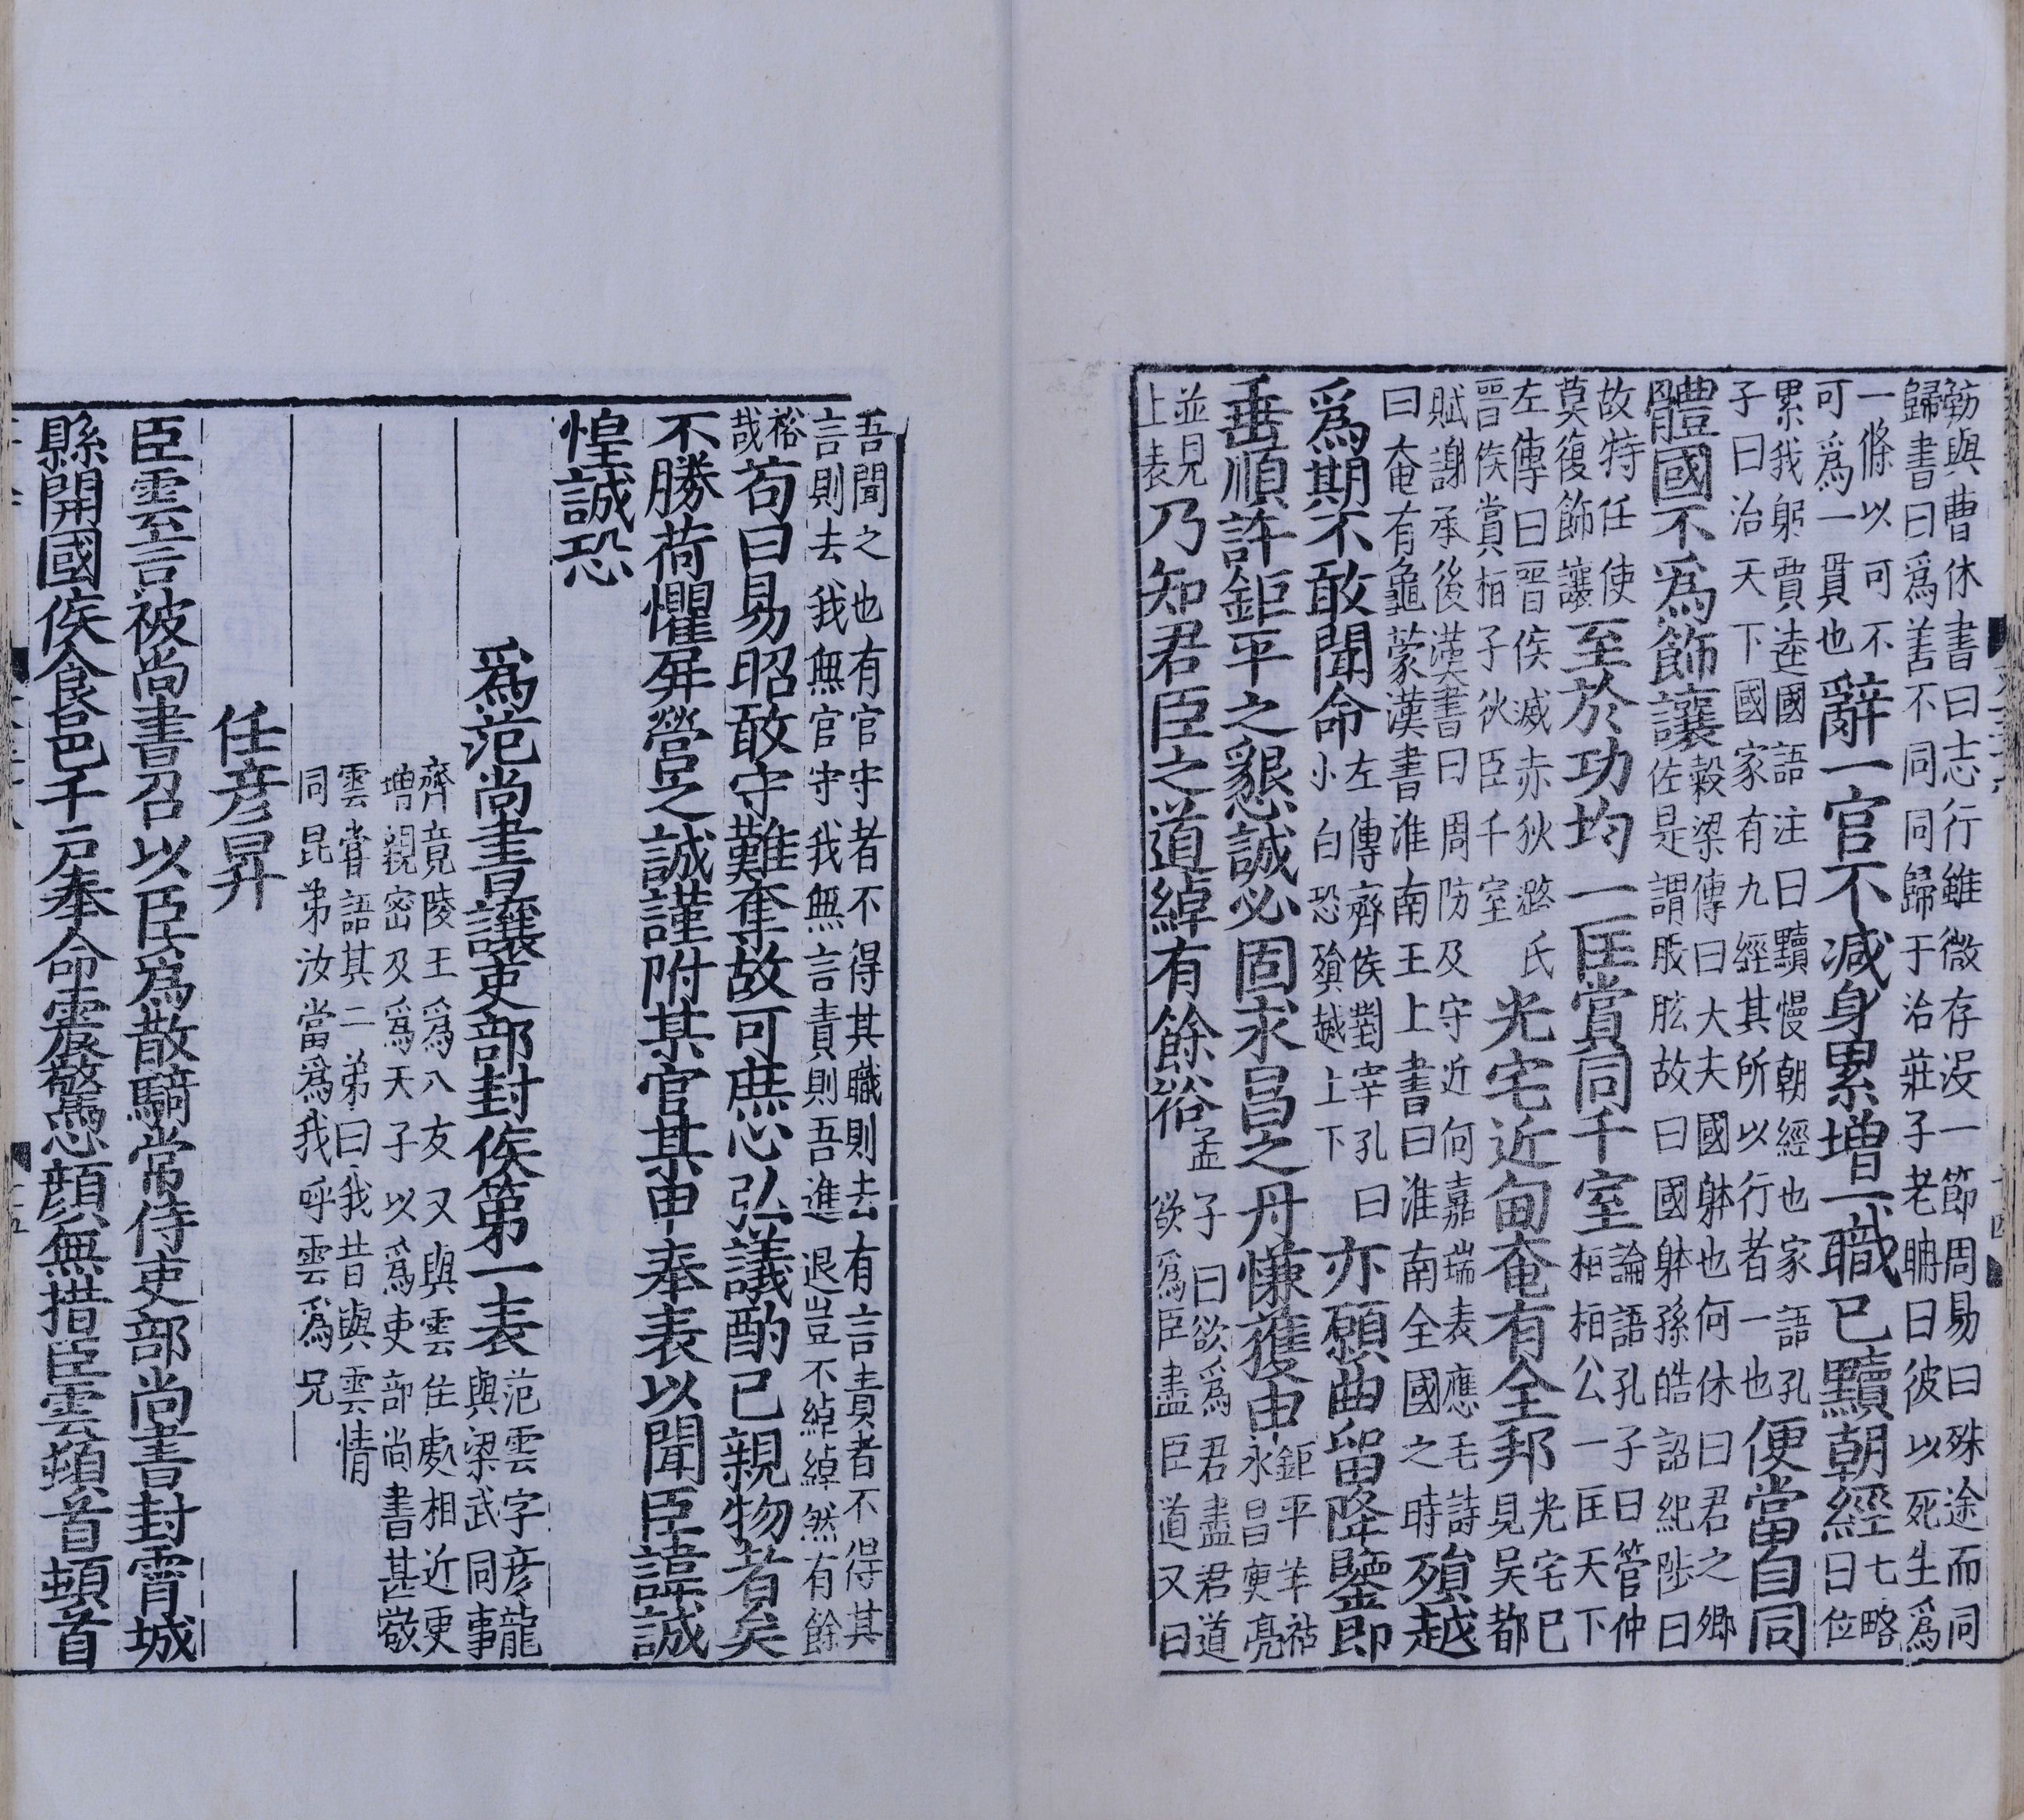 勑與曹休書曰志行雖微存沒一節周易曰殊途而同
歸書曰爲善不同同歸于治莊子老聃曰彼以死生爲
一條以可不
可爲一貫也
辭一官不減身累增一職已黷朝經
七略
曰位
累我躬賈逵國語注曰黷慢朝經也家語孔
子曰治天下國家有九經其所以行者一也
便當自同
體國不爲飾讓
穀梁傳曰大夫國體也何休曰君之卿
佐是謂股肱故曰國體孫皓詔紀陟曰
故特任使
莫復飾讓
至於功均一匡賞同千室
論語孔子曰管仲
相桓公一匡天下
左傳曰晉侯滅赤狄潞氏
晉侯賞桓子狄臣千室
光宅近甸奄有全邦
光宅已
見吳都
賦謝承後漢書曰周防及守近何嘉瑞表應毛詩
曰奄有龜蒙漢書淮南王上書曰淮南全國之時
殞越
爲期不敢聞命
左傳齊侯對宰孔曰
小白恐殞越上下
亦願曲留降鑒即
垂順許鉅平之懇誠必固求昌之丹慊獲申
鉅平羊祜
永昌庾亮
並見
上表
乃知君臣之道綽有餘裕
孟子曰欲爲君盡君道
欲爲臣盡臣道又曰
吾聞之也有官守者不得其職則去有言責者不得其
言則去我無官守我無言責則吾進退豈不綽綽然有餘
裕
哉
苟曰易昭敢守難奪故可庶心弘議酌己親物者矣
不勝荷懼屏營之誠謹附某官某甲奉表以聞臣諱誠
惶誠恐
爲范尚書讓吏部封侯第一表
范雲字彥龍
與梁武同事
齊竟陵王爲八友又與雲住處相近更
增親密及爲天子以爲吏部尚書甚敬
雲嘗語其二弟曰我昔與雲情
同昆弟汝當爲我呼雲爲兄
任彥昇
臣雲言被尚書召以臣爲散騎常侍吏部尚書封霄城
縣開國侯食邑千戶奉命震驚心顏無措臣雲頓首頓首